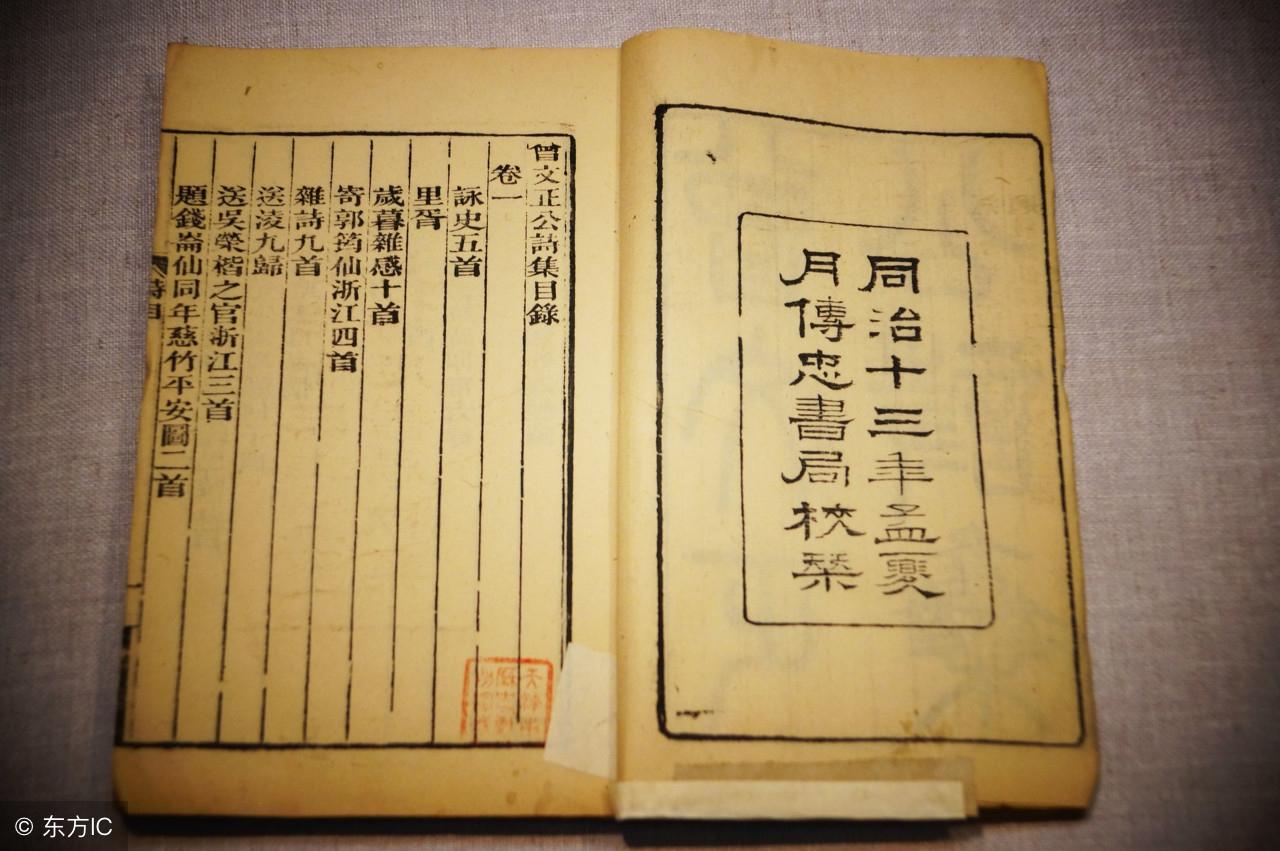 同治十三年孟夏
月傳忠書局校栞
曾文正公詩集目錄
卷一
詠史五首
里胥
歲暮雜感十首
寄郭筠仙浙江四首
雜詩九首
送淩九歸
送吳榮楷之官浙江三首
題錢崙仙同年慈竹平安圖二首
詩目
© 东方IC